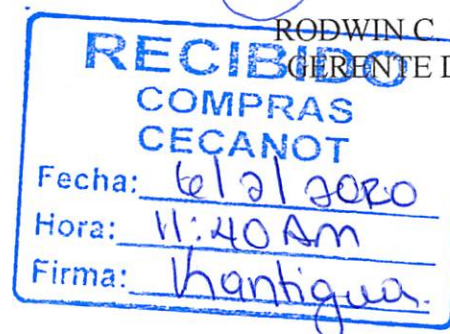 RODWIN C.
GERENTE D
RECIBIDO
COMPRAS
CECANOT
Fecha: 6/2/2020
Hora: 11:40 AM
Firma: Khantigua.